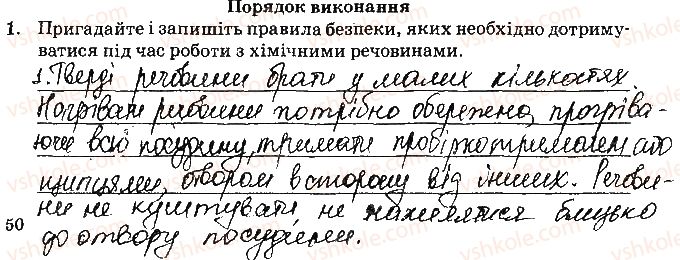 Порядок виконання
1. Пригадайте і запишіть правила безпеки, яких необхідно дотриму-
ватися під час роботи з хімічними речовинами.
1. Тверді речовини брати у малих кількостях.
Нагрівати речовини потрібно обережно, прогріва-
ючи всю посудину, тримати пробіркотримачем або
щипцями, отвором в сторону від інших. Речови-
ни не куштувати, не нахилятися близько
50
до отвору посудини.